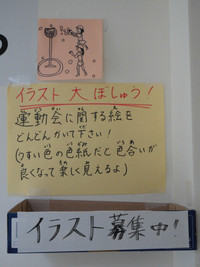 イラスト大ぼしゅう!
運動会に関する絵を
どんどんかいて下さい!
(うすい色の色紙だと色合いが
良くなって楽しく見えるよ)
イラスト募集中!